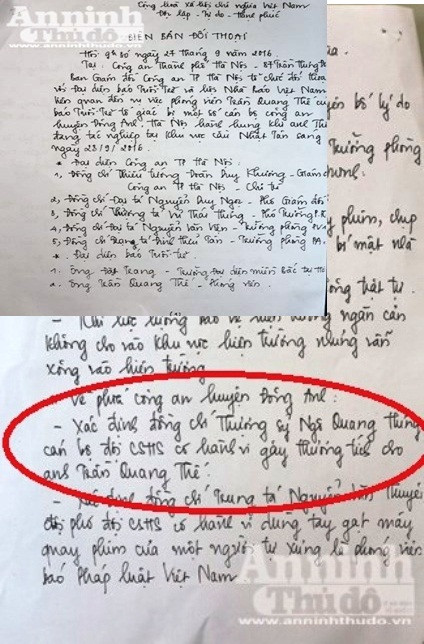 An ninh
Thủ đô
Cộng hòa xã hội chủ nghĩa Việt Nam
Độc lập - Tự do - Hạnh phúc
BIÊN BẢN ĐỐI THOẠI
Hồi 9h ngày 27 tháng 9 năm 2016.
Tại: Công an Thành phố Hà Nội - 87 Trần Hưng Đạo
Ban Giám đốc Công an TP Hà Nội tổ chức đối thoại
với Đại diện báo Tuổi trẻ và hội Nhà báo Việt Nam
liên quan đến vụ việc phóng viên Trần Quang Thế
báo Tuổi trẻ tố giác bị một số cán bộ công an
huyện Đông Anh, Hà Nội hành hung khi anh Thế
đang tác nghiệp tại khu vực cầu Nhật Tân sáng
ngày 23/9/2016.
Đại diện Công an TP Hà Nội:
1, Đồng chí Thiếu tướng Đoàn Duy Khương - Giám
Công an TP Hà Nội - Chủ trì
2, Đồng chí Đại tá Nguyễn Duy Ngọc - Phó Giám đốc
3, Đồng chí Thượng tá Vũ Thái Thông - Phó Trưởng
4, Đồng chí Đại tá Nguyễn Văn Viện - Trưởng phòng
5, Đồng chí Trung tá Đinh Thiều Tân - Trưởng phòng PA
Đại diện báo Tuổi trẻ
1. Ông Trang - Trưởng Đại diện miền Bắc
2. Ông Trần Quang Thế - Phóng viên.
lý do
Trưởng phòng
phim, chụp
bí mật nhà
trật tự.
- Khi lực lượng bảo vệ hiện trường ngăn cản
không cho vào khu vực hiện trường nhưng vẫn
xông vào hiện trường
Về phía công an huyện Đông Anh:
- Xác định đồng chí Thượng sỹ Ngô Quang Hưng
cán bộ đội CSHS có hành vi gây thương tích cho
anh Trần Quang Thế.
- Xác định đồng chí Trung tá Nguyễn Văn Thuyên
đội phó đội CSHS có hành vi dùng tay gạt máy
quay phim của một người tự xưng là phóng viên
báo Pháp luật Việt Nam
An ninh
Thủ đô
www.anninhthudo.vn